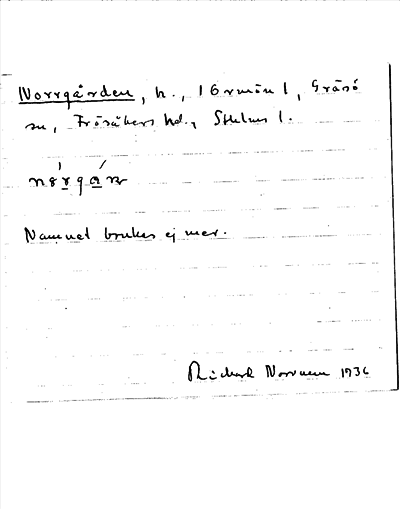 Norrgården, h., i Örmön 1, Gräsö
sn, Frösåkers hd., Sthlms l.
nǫ́rgáɳ
Namnet brukas ej mer.
Richard Norrman 1936